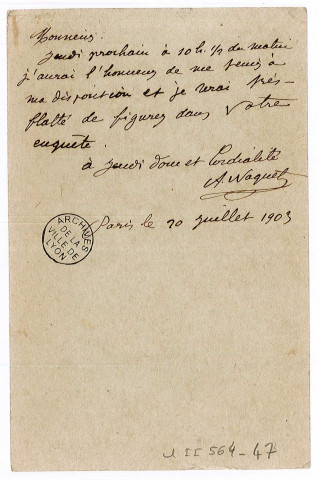 Monneur.
Jeudi prochain à 10 h. 1/2 du matin
j'aurai l'honneur de me tenir à
ma disposition et je serai très-
flatté de figurer dans Votre
enquete.
à jeudi donc et Cordialité
A. Waquet
Paris le 20 juillet 1903
ARCHIVES
DE LA
VILLE DE
LYON
1 II 564-47